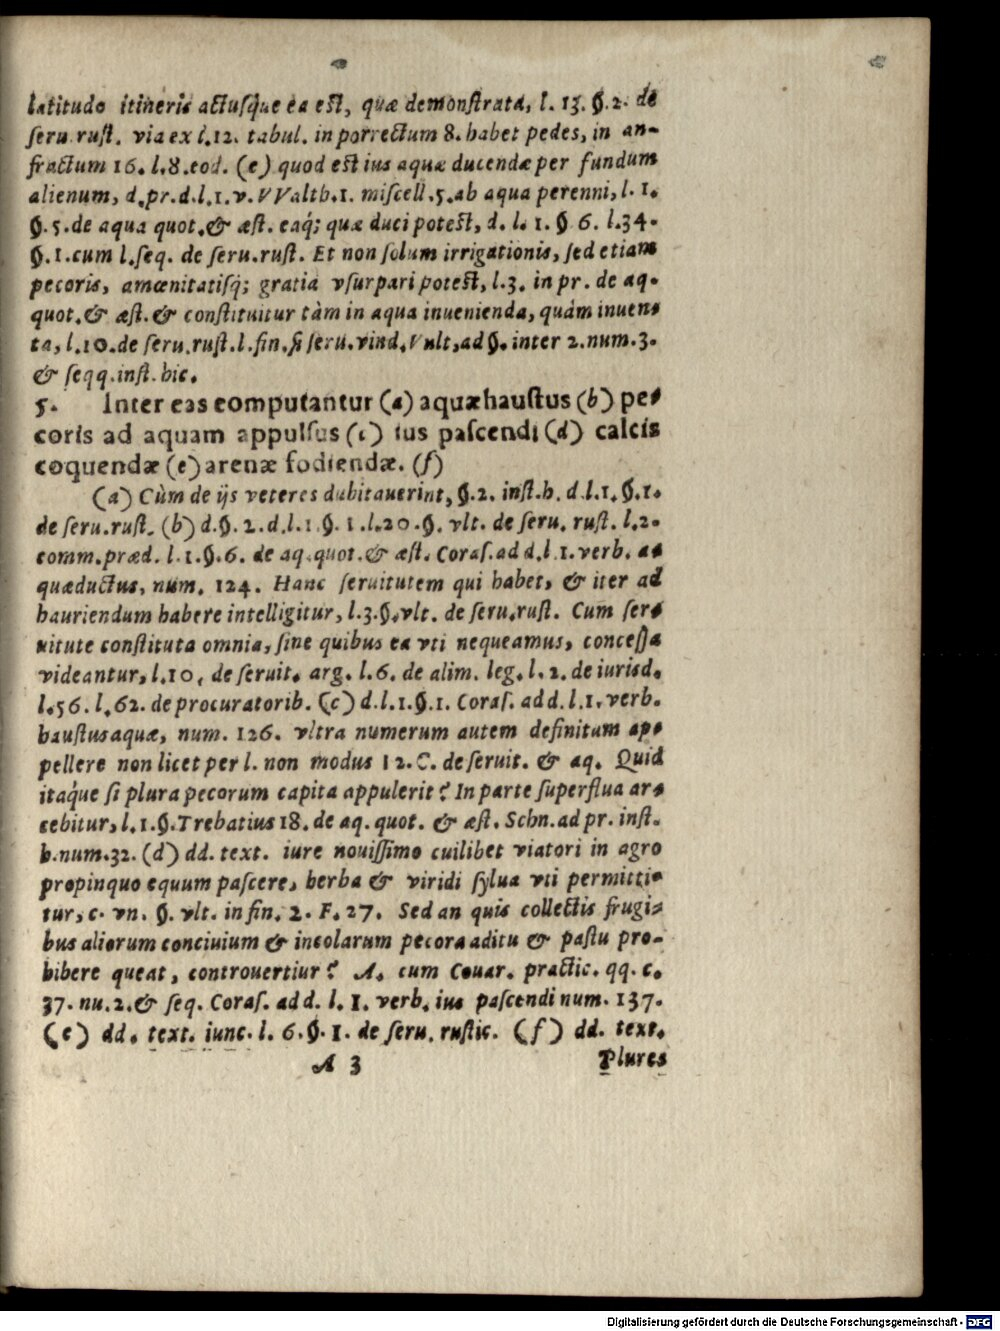 latitudo itineris actusque ea est, quæ demonstrata, l. 13. §. 2. de
seru. rust. via ex l. 12. tabul. in porrectum 8. habet pedes, in an-
fractum 16. l. 8. eod. (e) quod est ius aquæ ducendæ per fundum
alienum, d. pr. d. l. 1. v. VValtb. 1. miscell. 5. ab aqua perenni, l. 1.
§. 5. de aqua quot. & æst. eaq́; quæ duci potest, d. l. 1. § 6. l. 34.
§. 1. cum l. seq. de seru. rust. Et non solum irrigationis, sed etiam
pecoris, amœnitatisq́; gratia vsurpari potest, l. 3. in pr. de aq.
quot. & æst. & constituitur tàm in aqua inuenienda, quàm inuen-
ta, l. 10. de seru. rust. l. fin. si seru. vind. Vult, ad §. inter 2. num. 3.
& seqq. inst. hic.
5. Inter eas computantur (a) aquæhaustus (b) pe-
coris ad aquam appulsus (c) ius pascendi (d) calcis
coquendæ (e) arenæ fodiendæ. (f)
(a) Cùm de ijs veteres dubitauerint, §. 2. inst. h. d. l. 1. §. 1.
de seru. rust. (b) d. §. 2. d. l. 1 §. 1. l. 20. §. vlt. de seru. rust. l. 2.
comm. præd. l. 1. §. 6. de aq. quot. & æst. Coras. ad d. l 1. verb. a-
quæductus, num. 124. Hanc seruitutem qui habet, & iter ad
hauriendum habere intelligitur, l. 3. §. vlt. de seru. rust. Cum ser-
uitute constituta omnia, sine quibus ea vti nequeamus, concessa
videantur, l. 10. de seruit. arg. l. 6. de alim. leg. l. 2. de iurisd.
l. 56. l. 62. de procuratorib. (c) d. l. 1. §. 1. Coras. ad d. l. 1. verb.
haustus aquæ, num. 126. vltra numerum autem definitum ap-
pellere non licet per l. non modus 12. C. de seruit. & aq. Quid
itaq́ue si plura pecorum capita appulerit? In parte superflua ar-
cebitur, l. 1. §. Trebatius 18. de aq. quot. & æst. Schn. ad pr. inst.
h. num. 32. (d) dd. text. iure nouissimo cuilibet viatori in agro
propinquo equum pascere, herba & viridi sylua vti permitti-
tur, c. vn. §. vlt. in fin. 2. F. 27. Sed an quis collectis frugi-
bus aliorum conciuium & incolarum pecora aditu & pastu pro-
hibere queat, controuertiur? A. cum Couar. practic. qq. c.
37. nu. 2. & seq. Coras. ad d. l. 1. verb. ius pascendi num. 137.
(e) dd. text. iunc. l. 6. §. 1. de seru. rustic. (f) dd. text.
A 3 Plures
Digitalisierung gefördert durch die Deutsche Forschungsgemeinschaft - DFG